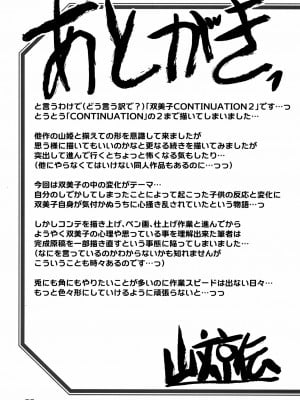 あとがき、
と言うわけで(どう言う訳で？)「双美子CONTINUATION２」です…っ
とうとう「CONTINUATION」の２まで描いてしまいました…
他作の山姫と揃えての形を意識して来ましたが
思う様に描いてもいいのかなと更なる続きを描いてみましたが
突出して進んで行くとちょっと怖くなる気もしたり…
(他にやらなくてはいけない同人作品もあるのに…っ)
今回は双美子の中の変化がテーマ…
自分のしでかしてしまったことによって起こった子供の反応と変化に
双美子自身が気付かぬうちに掻き乱されていたという物語…っ
しかしコンテを描き上げ、ペン画、仕上げ作業と進んでから
ようやく双美子の心理や思っている事を理解出来た筆者は
完成原稿を一部描き直すという事態に陥ってしまいました…
(なにを言っているのかわからないかも知れませんが
こういうことも時々あるのです…っ)
兎にも角にもやりたいことが多いのに作業スピードは出ない日々…
もっと色々形にしていけるように頑張らないと…っっ
山文京伝